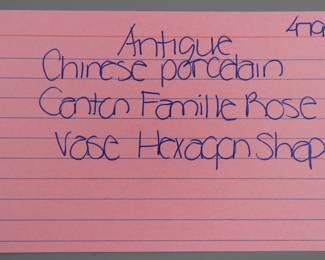 Antique
Chinese porcelain
Canton Famille Rose
Vase Hexagon Shap